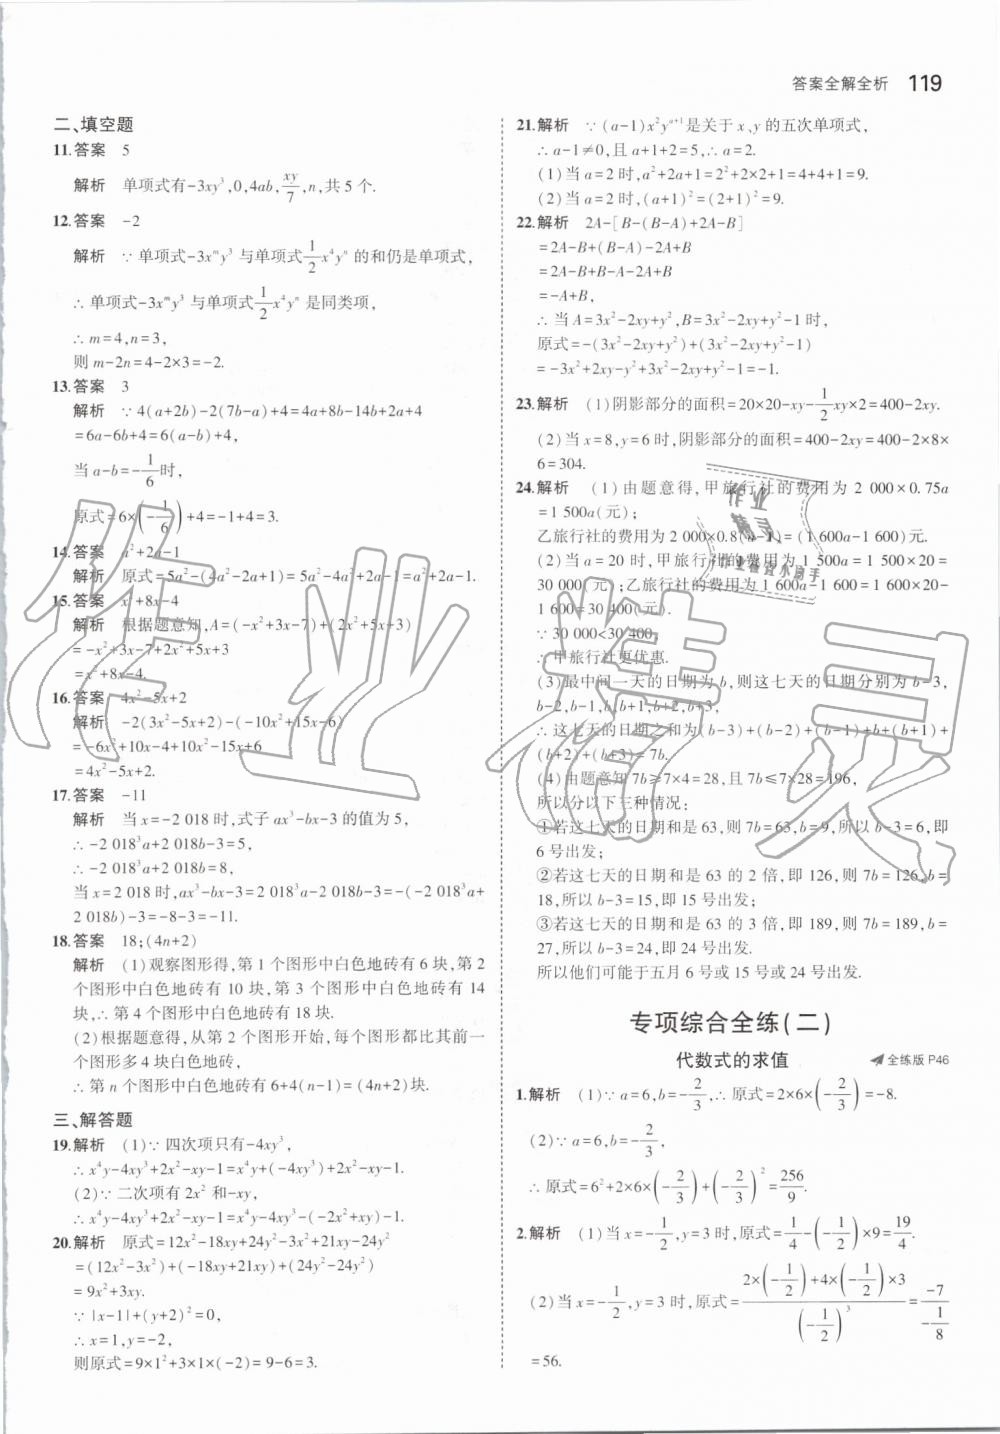 答案全解全析 119
二、填空题
11.答案 5
解析 单项式有-3xy³,0,4ab,xy/7,n,共5个.
12.答案 -2
解析 ∵单项式-3xᵐy³与单项式1/2x⁴yⁿ的和仍是单项式,
∴单项式-3xᵐy³与单项式1/2x⁴yⁿ是同类项,
∴m=4,n=3,
则m-2n=4-2×3=-2.
13.答案 3
解析 ∵4(a+2b)-2(7b-a)+4=4a+8b-14b+2a+4
=6a-6b+4=6(a-b)+4,
当a-b=-1/6时,
原式=6×(-1/6)+4=-1+4=3.
14.答案 a²+2a-1
解析 原式=5a²-(4a²-2a+1)=5a²-4a²+2a-1=a²+2a-1.
15.答案 x²+8x-4
解析 根据题意知,A=(-x²+3x-7)+(2x²+5x+3)
=-x²+3x-7+2x²+5x+3
=x²+8x-4.
16.答案 4x²-5x+2
解析 -2(3x²-5x+2)-(-10x²+15x-6)
=-6x²+10x-4+10x²-15x+6
=4x²-5x+2.
17.答案 -11
解析 当x=-2 018时,式子ax³-bx-3的值为5,
∴-2 018³a+2 018b-3=5,
∴-2 018³a+2 018b=8,
当x=2 018时,ax³-bx-3=2 018³a-2 018b-3=-(-2 018³a+
2 018b)-3=-8-3=-11.
18.答案 18;(4n+2)
解析 (1)观察图形得,第1个图形中白色地砖有6块,第2
个图形中白色地砖有10块,第3个图形中白色地砖有14
块,∴第4个图形中白色地砖有18块.
(2)根据题意得,从第2个图形开始,每个图形都比其前一
个图形多4块白色地砖,
∴第n个图形中白色地砖有6+4(n-1)=(4n+2)块.
三、解答题
19.解析 (1)∵四次项只有-4xy³,
∴x⁴y-4xy³+2x²-xy-1=x⁴y+(-4xy³)+2x²-xy-1.
(2)∵二次项有2x²和-xy,
∴x⁴y-4xy³+2x²-xy-1=x⁴y-4xy³-(-2x²+xy)-1.
20.解析 原式=12x²-18xy+24y²-3x²+21xy-24y²
=(12x²-3x²)+(-18xy+21xy)+(24y²-24y²)
=9x²+3xy.
∵|x-1|+(y+2)²=0,
∴x=1,y=-2,
则原式=9×1²+3×1×(-2)=9-6=3.
21.解析 ∵(a-1)x²yᵃ⁺¹是关于x、y的五次单项式,
∴a-1≠0,且a+1+2=5,∴a=2.
(1)当a=2时,a²+2a+1=2²+2×2+1=4+4+1=9.
(2)当a=2时,(a+1)²=(2+1)²=9.
22.解析 2A-[B-(B-A)+2A-B]
=2A-B+(B-A)-2A+B
=2A-B+B-A-2A+B
=-A+B,
∴当A=3x²-2xy+y²,B=3x²-2xy+y²-1时,
原式=-(3x²-2xy+y²)+(3x²-2xy+y²-1)
=-3x²+2xy-y²+3x²-2xy+y²-1=-1.
23.解析 (1)阴影部分的面积=20×20-xy-1/2xy×2=400-2xy.
(2)当x=8,y=6时,阴影部分的面积=400-2xy=400-2×8×
6=304.
24.解析 (1)由题意得,甲旅行社的费用为2 000×0.75a
=1 500a(元);
乙旅行社的费用为2 000×0.8(a-1)=(1 600a-1 600)元.
(2)当a=20时,甲旅行社的费用为1 500a=1 500×20=
30 000(元);乙旅行社的费用为1 600a-1 600=1 600×20-
1 600=30 400(元).
∵30 000<30 400,
∴甲旅行社更优惠.
(3)最中间一天的日期为b,则这七天的日期分别为b-3,
b-2,b-1,b,b+1,b+2,b+3,
∴这七天的日期之和为(b-3)+(b-2)+(b-1)+b+(b+1)+
(b+2)+(b+3)=7b.
(4)由题意知7b≥7×4=28,且7b≤7×28=196,
所以分以下三种情况:
①若这七天的日期和是63,则7b=63,b=9,所以b-3=6,即
6号出发;
②若这七天的日期和是63的2倍,即126,则7b=126,b=
18,所以b-3=15,即15号出发;
③若这七天的日期和是63的3倍,即189,则7b=189,b=
27,所以b-3=24,即24号出发.
所以他们可能于五月6号或15号或24号出发.
专项综合全练(二)
代数式的求值 全练版P46
1.解析 (1)∵a=6,b=-2/3,∴原式=2×6×(-2/3)=-8.
(2)∵a=6,b=-2/3,
∴原式=6²+2×6×(-2/3)+(-2/3)²=256/9.
2.解析 (1)当x=-1/2,y=3时,原式=1/4-(-1/2)×9=19/4.
(2)当x=-1/2,y=3时,原式=(2×(-1/2)+4×(-1/2)×3)/(-1/2)³=(-7)/(-1/8)
=56.
作业精灵